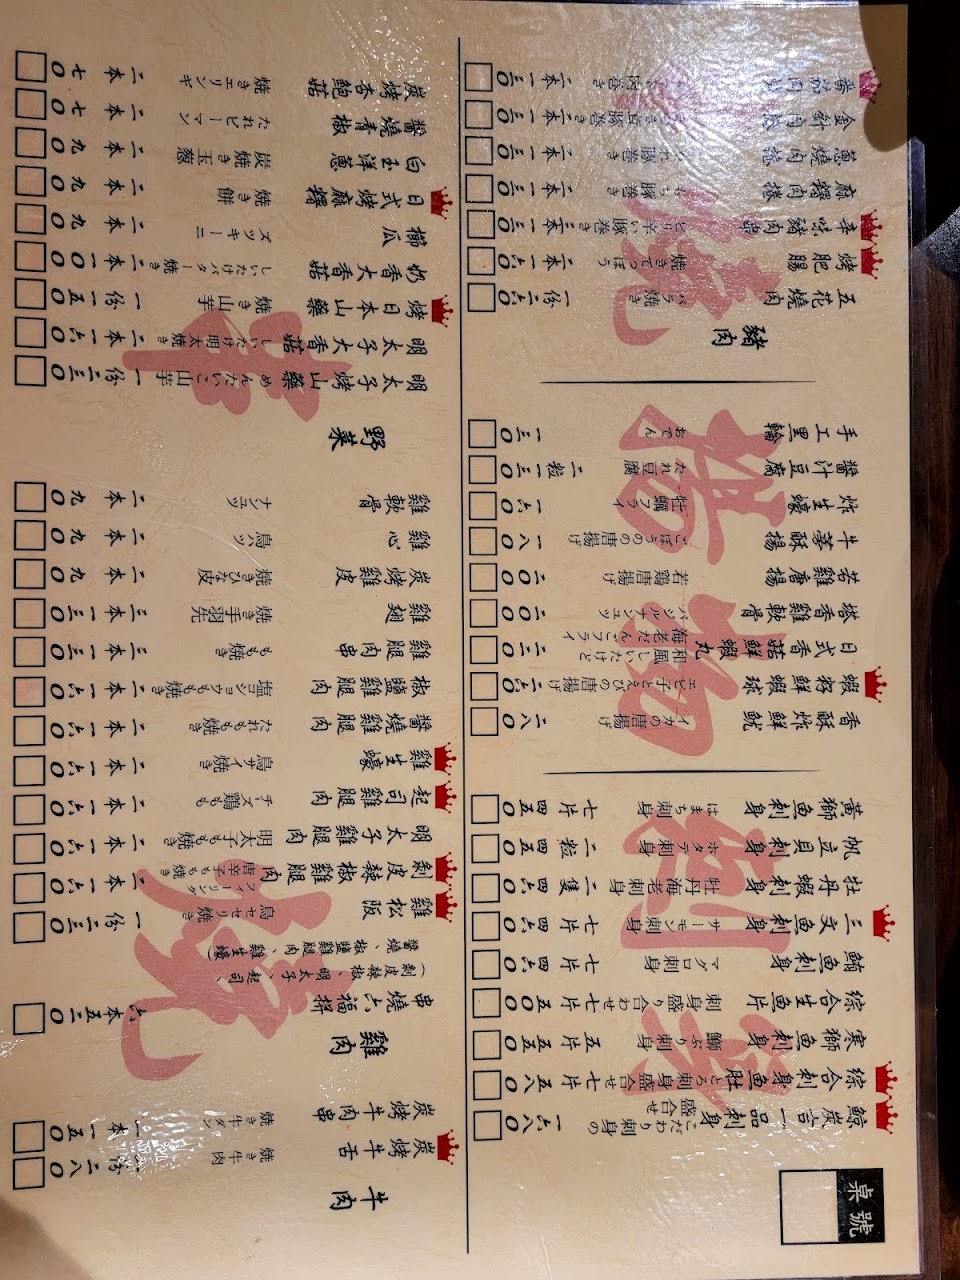 桌號
鯨炭吉一品刺身 こだわりの刺身の盛合せ 一六八〇
綜合刺身魚肚 とろ刺身盛合せ 七片 五八〇
寒鰤魚刺身 鰤ぶり刺身 五片 五五〇
綜合生魚片 刺身盛り合わせ 七片 五〇〇
鮪魚刺身 マグロ刺身 七片 四六〇
三文魚刺身 サーモン刺身 七片 四六〇
牡丹蝦刺身 牡丹海老刺身 二隻 四六〇
帆立貝刺身 ホタテ刺身 二粒 四五〇
黃鰤魚刺身 はまち刺身 七片 四五〇
香酥炸鮮魷 イカの唐揚げ 二八〇
蝦籽鮮蝦球 エビ子とえびの唐揚げ 二六〇
日式香菇鮮蝦丸 和風しいたけと海老だんごフライ 二三〇
塔香雞軟骨 バジルナンコツ 二〇〇
若雞唐揚 若鶏唐揚げ 二〇〇
牛蒡酥揚 ごぼうの唐揚げ 一八〇
炸生蠔 牡蠣フライ 一六〇
醬汁豆腐 たれ豆腐 二粒 一三〇
手工黑輪 おでん 一三〇
揚物
豬肉
五花燒肉 バラ焼き 一份 二六〇
烤肥腸 焼きてっぽう 二本 一六〇
辛味豬肉串 ピリ辛い豚巻き 二本 一三〇
麻糬肉捲 もち豚巻き 二本 一三〇
蔥燒肉捲 二本 一三〇
金針肉捲 二本 一三〇
番茄肉捲 二本 一三〇
牛肉
炭烤牛舌 焼き牛肉 一份 二八〇
炭烤牛肉串 焼き牛タン 一本 一五〇
雞肉
串燒六福拼 六本 五二〇
(剝皮辣椒、明太子、起司、
醬燒、椒鹽雞腿肉、雞生蠔)
雞松阪 鳥セセリ焼き 一份 二三〇
剝皮辣椒雞腿肉 唐辛子もも焼き 二本 一六〇
明太子雞腿肉 明太子もも焼き 二本 一六〇
起司雞腿肉 チーズ鶏もも 二本 一六〇
雞生蠔 鳥サイ焼き 二本 一六〇
醬燒雞腿肉 たれもも焼き 二本 一六〇
椒鹽雞腿肉 塩コショウもも焼き 二本 一六〇
雞腿肉串 もも焼き 三本 一三〇
雞翅 焼き手羽先 三本 一三〇
炭烤雞皮 焼きひな皮 二本 九〇
雞心 鳥ハツ 二本 九〇
雞軟骨 ナンコツ 二本 九〇
野菜
明太子烤山藥 めんたいこ山芋 一份 二三〇
明太子大香菇 しいたけ明太焼き 二本 一六〇
烤日本山藥 焼き山芋 一份 一五〇
奶香大香菇 しいたけバター焼き 二本 一〇〇
櫛瓜 ズッキーニ 二本 九〇
日式烤麻糬 焼き餅 二本 九〇
白玉洋蔥 炭焼き玉葱 二本 九〇
醬燒青椒 たれピーマン 二本 七〇
炭烤杏鮑菇 焼きエリンギ 二本 七〇
串燒